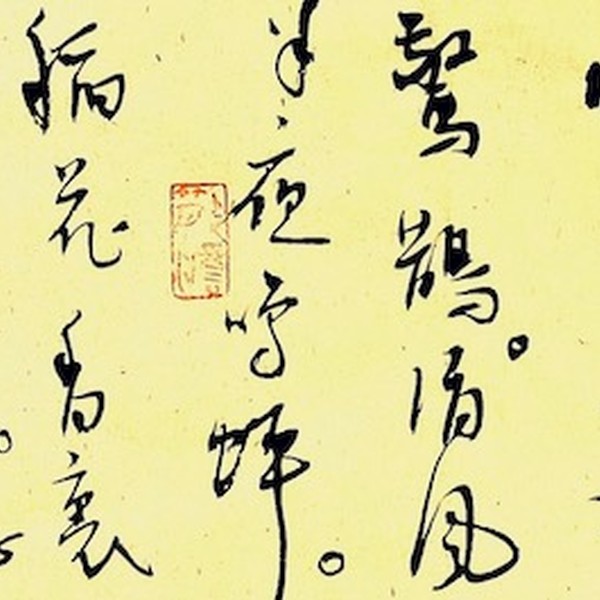 驚鵲。清風
半夜鳴蟬。
稻花香裏